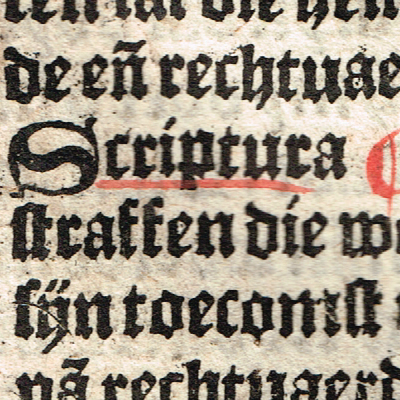 de eñ rechtuae
Scriptura
straffen die w
sijn toecomst
nã rechtuaerd